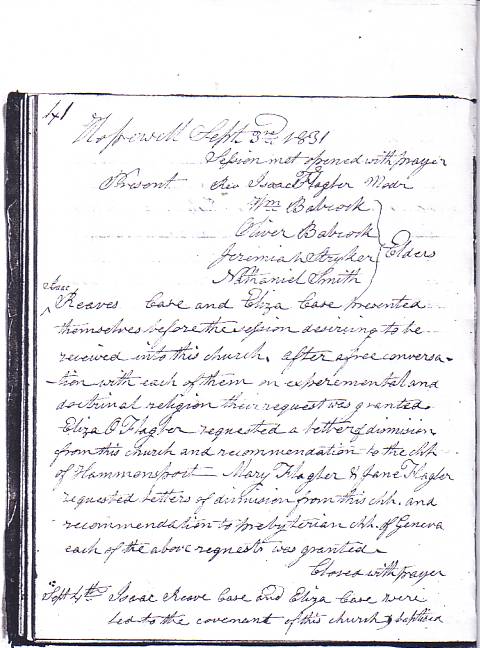 41
Hopewell Sept 3rd 1831
Session met opened with prayer
Present Rev Isaac Flagler Modr
Wm Babcock
Oliver Babcock
Jeremiah Stryker Elders
Nathaniel Smith
Isaac
Reaves Case and Eliza Case presented
themselves before the session desiring to be
received into this church. After a free conversa-
-tion with each of them on experemental and
doctrinal religion their request was granted.
Eliza O Flagler requested a letter of dismission
from this church and recommendation to the chh
of Hammonsport - Mary Flagler & Jane Flagler
requested letters of dismission from this chh. and
recommendation to presbyterian chh. of Geneva
each of the above requests was granted
Closed with prayer
Sept 4th Isaac Reave Case and Eliza Case were
led to the covenant of this church & baptised